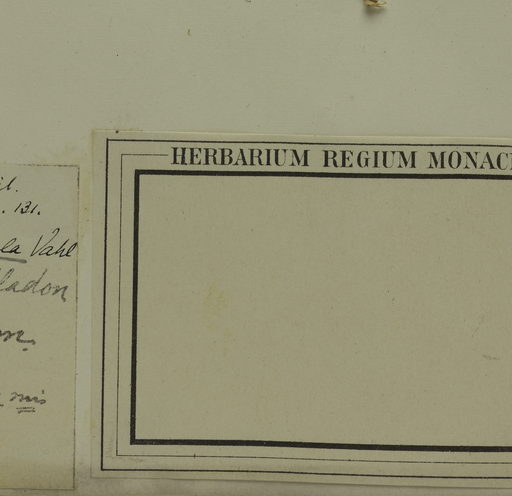 . 131.
la Vahl
ladon
mis
HERBARIUM REGIUM MONAC